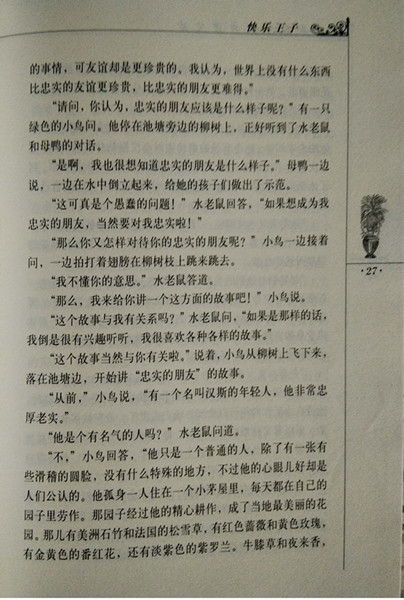 快乐王子
的事情，可友谊却是更珍贵的。我认为，世界上没有什么东西
比忠实的友谊更珍贵，比忠实的朋友更难得。”
“请问，你认为，忠实的朋友应该是什么样子呢？”有一只
绿色的小鸟问。他停在池塘旁边的柳树上，正好听到了水老鼠
和母鸭的对话。
“是啊，我也很想知道忠实的朋友是什么样子。”母鸭一边
说，一边在水中倒立起来，给她的孩子们做出了示范。
“这可真是个愚蠢的问题！”水老鼠回答，“如果想成为我
忠实的朋友，当然要对我忠实啦！”
“那么你又怎样对待你的忠实的朋友呢？”小鸟一边接着
问，一边拍打着翅膀在柳树枝上跳来跳去。
“我不懂你的意思。”水老鼠答道。
“那么，我来给你讲一个这方面的故事吧！”小鸟说。
“这个故事与我有关系吗？”水老鼠问，“如果是那样的话，
我倒是很有兴趣听听，我很喜欢各种各样的故事。”
“这个故事当然与你有关啦。”说着，小鸟从柳树上飞下来，
落在池塘边，开始讲“忠实的朋友”的故事。
“从前，”小鸟说，“有一个名叫汉斯的年轻人，他非常忠
厚老实。”
“他是个有名气的人吗？”水老鼠问道。
“不，”小鸟回答，“他只是一个普通的人，除了有一张有
些滑稽的圆脸，没有什么特殊的地方，不过他的心眼儿好却是
人们公认的。他孤身一人住在一个小茅屋里，每天都在自己的
园子里劳作。那园子经过他的精心耕作，成了当地最美丽的花
园。那儿有美洲石竹和法国的松雪草，有红色蔷薇和黄色玫瑰，
有金黄色的番红花，还有淡紫色的紫罗兰。牛膝草和夜来香，
·27·